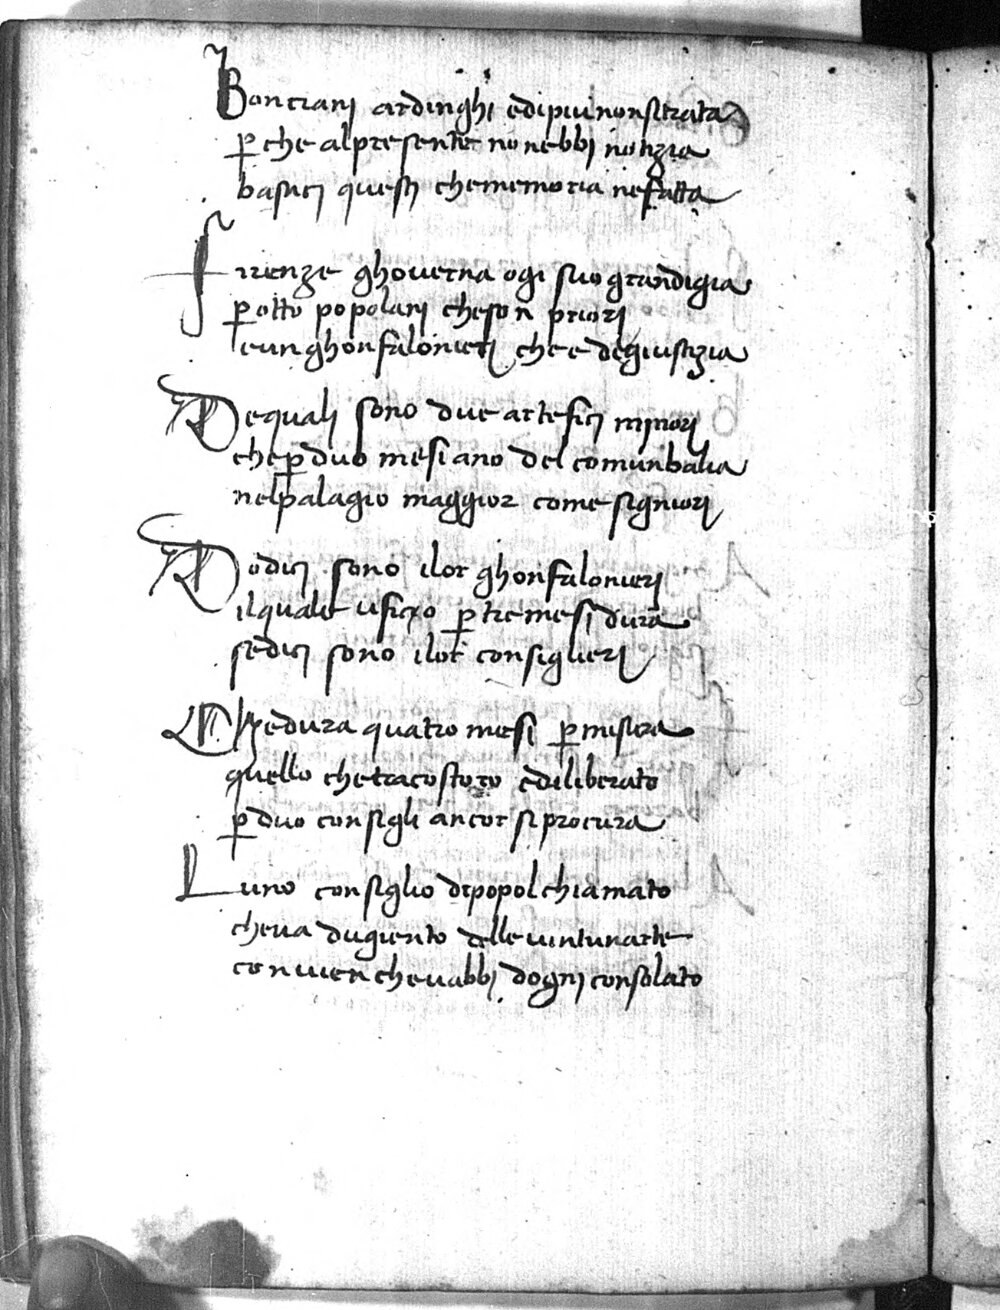 Bonciani ardinghi edipiu nonsitrata
p̱ che alpresente no nebbi notizia
bastiti questi chememoria nefatta
firenze ghoverna ogi suo grandigia
p̱ otto popolari cheson priori
e un ghonfalonieri che e degiustizia
Dequali sono due artefici minori
che p̱ duo mesi ano del comun balia
nel palagio maggior come signiori
Dodici sono ilor ghonfalonieri
ilquale uficio p̱ tre mesi dura
sedici sono ilor consiglieri
Chedura quatro mesi p̱ misura
quello chetracostoro ediliberato
p̱ duo consigli ancor siprocura
Luno consiglio dipopol chiamato
cheva dugiento delle vintunarte
convien chevabbi dogni consolato